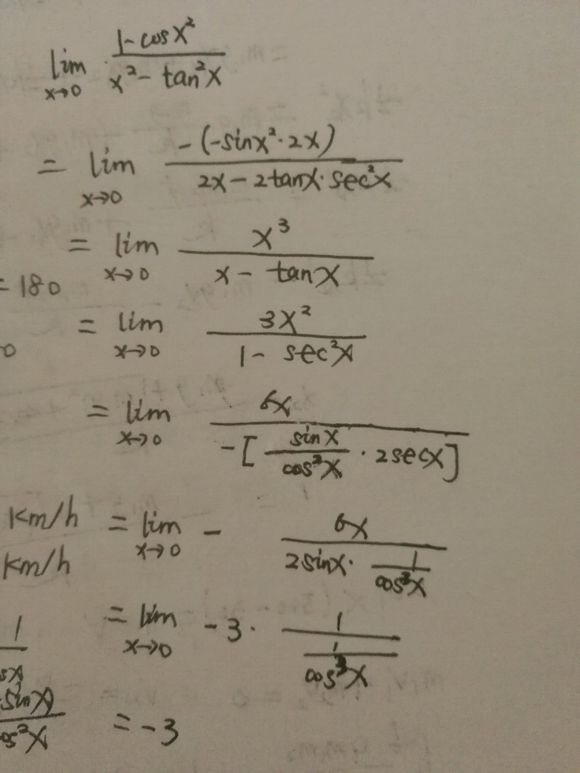 lim x→0 (1-cosx²)/(x²-tan²x)
= lim x→0 (-(-sinx²·2x))/(2x-2tanx·sec²x)
= lim x→0 x³/(x-tanx)
=180
= lim x→0 3x²/(1-sec²x)
0
= lim x→0 6x/(-[sinx/cos²x·2secx])
km/h = lim x→0 - 6x/(2sinx·1/cos³x)
km/h
= lim x→0 -3·1/(1/cos³x)
= -3